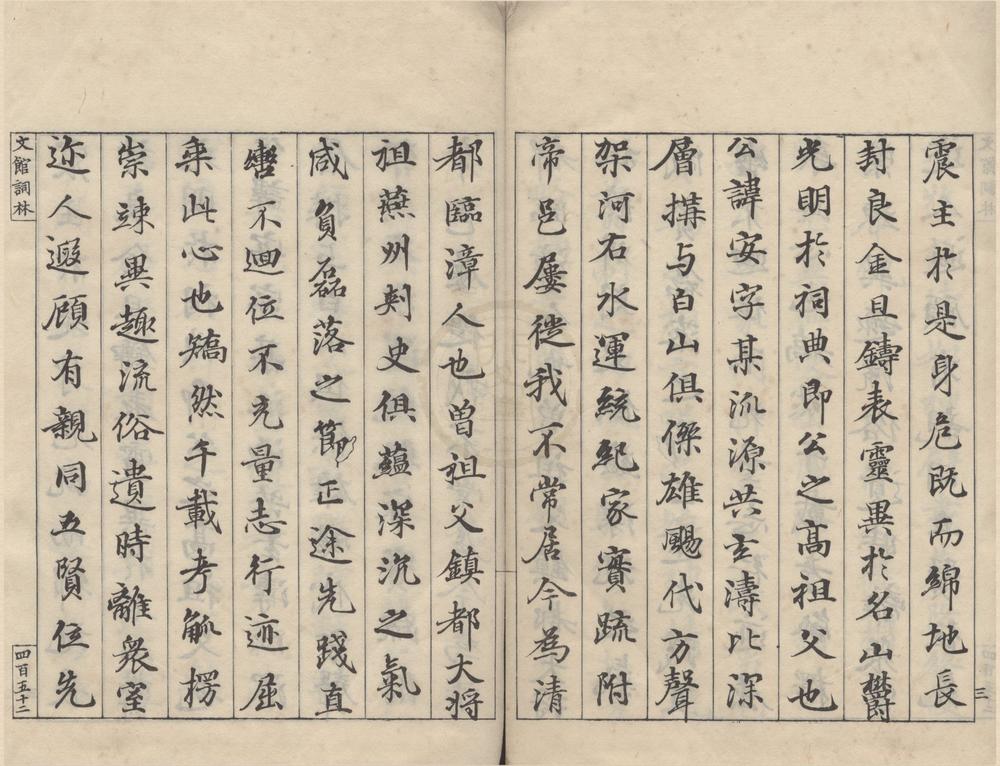 震主於是身危既而綿地長
封良金旦鑄表靈異於名山欝
光明於祠典即公之高祖父也
公諱安字某泒源共玄濤比深
層搆与白山俱儝雄颺代方聲
架河右水運統紀家賓䟽附
帝邑屢徙我不常居今為清
三
都臨漳人也曽祖父鎮都大将
祖蕪州刾史俱蘊深沉之氣
咸負磊落之節正途先踐直
轡不迴位不充量志行迹屈
乗此心也矯然千載考觚楞
崇竦異趣流俗遺時離衆室
迩人遐顧有親同五賢位先
文館詞林
四百五十三